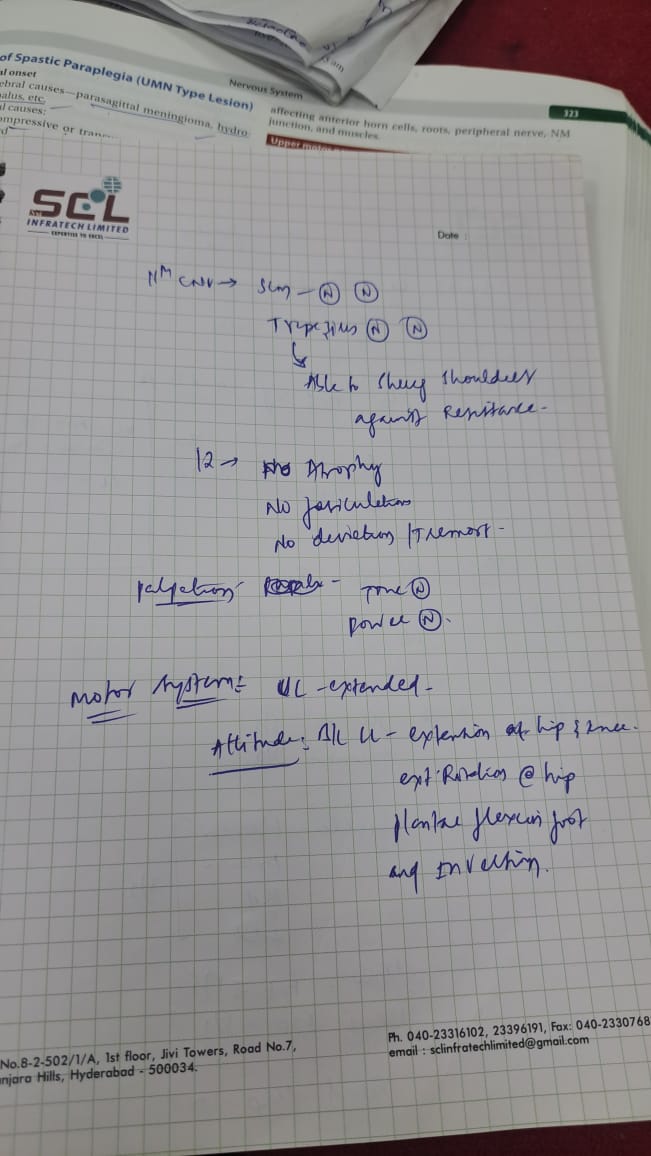 of Spastic Paraplegia (UMN Type Lesion)
al onset
ebral causes—parasagittal meningioma, hydro
alus, etc.
l causes:
ompressive or
Nervous System
323
affecting anterior horn cells, roots, peripheral nerve, NM
junction, and muscles.
Upper
SCL
INFRATECH LIMITED
EXPERTISE TO EXCEL
Date :
→ Scm - Ⓝ Ⓝ
Trapezius Ⓝ Ⓝ
↳
Able to Shrug Shoulders
against Resistance -
12 → No Atrophy
No fasiculations
No deviations / Tremors -
Palpation - Tone Ⓝ
Power Ⓝ.
Motor System : UL - extended -
Attitude : B/L LL - extension of hip & knee.
ext. Rotation @ hip
plantar flexion foot
and Inversion.
No.8-2-502/1/A, 1st floor, Jivi Towers, Road No.7,
njara Hills, Hyderabad - 500034.
Ph. 040-23316102, 23396191, Fax: 040-2330768
email : sclinfratechlimited@gmail.com